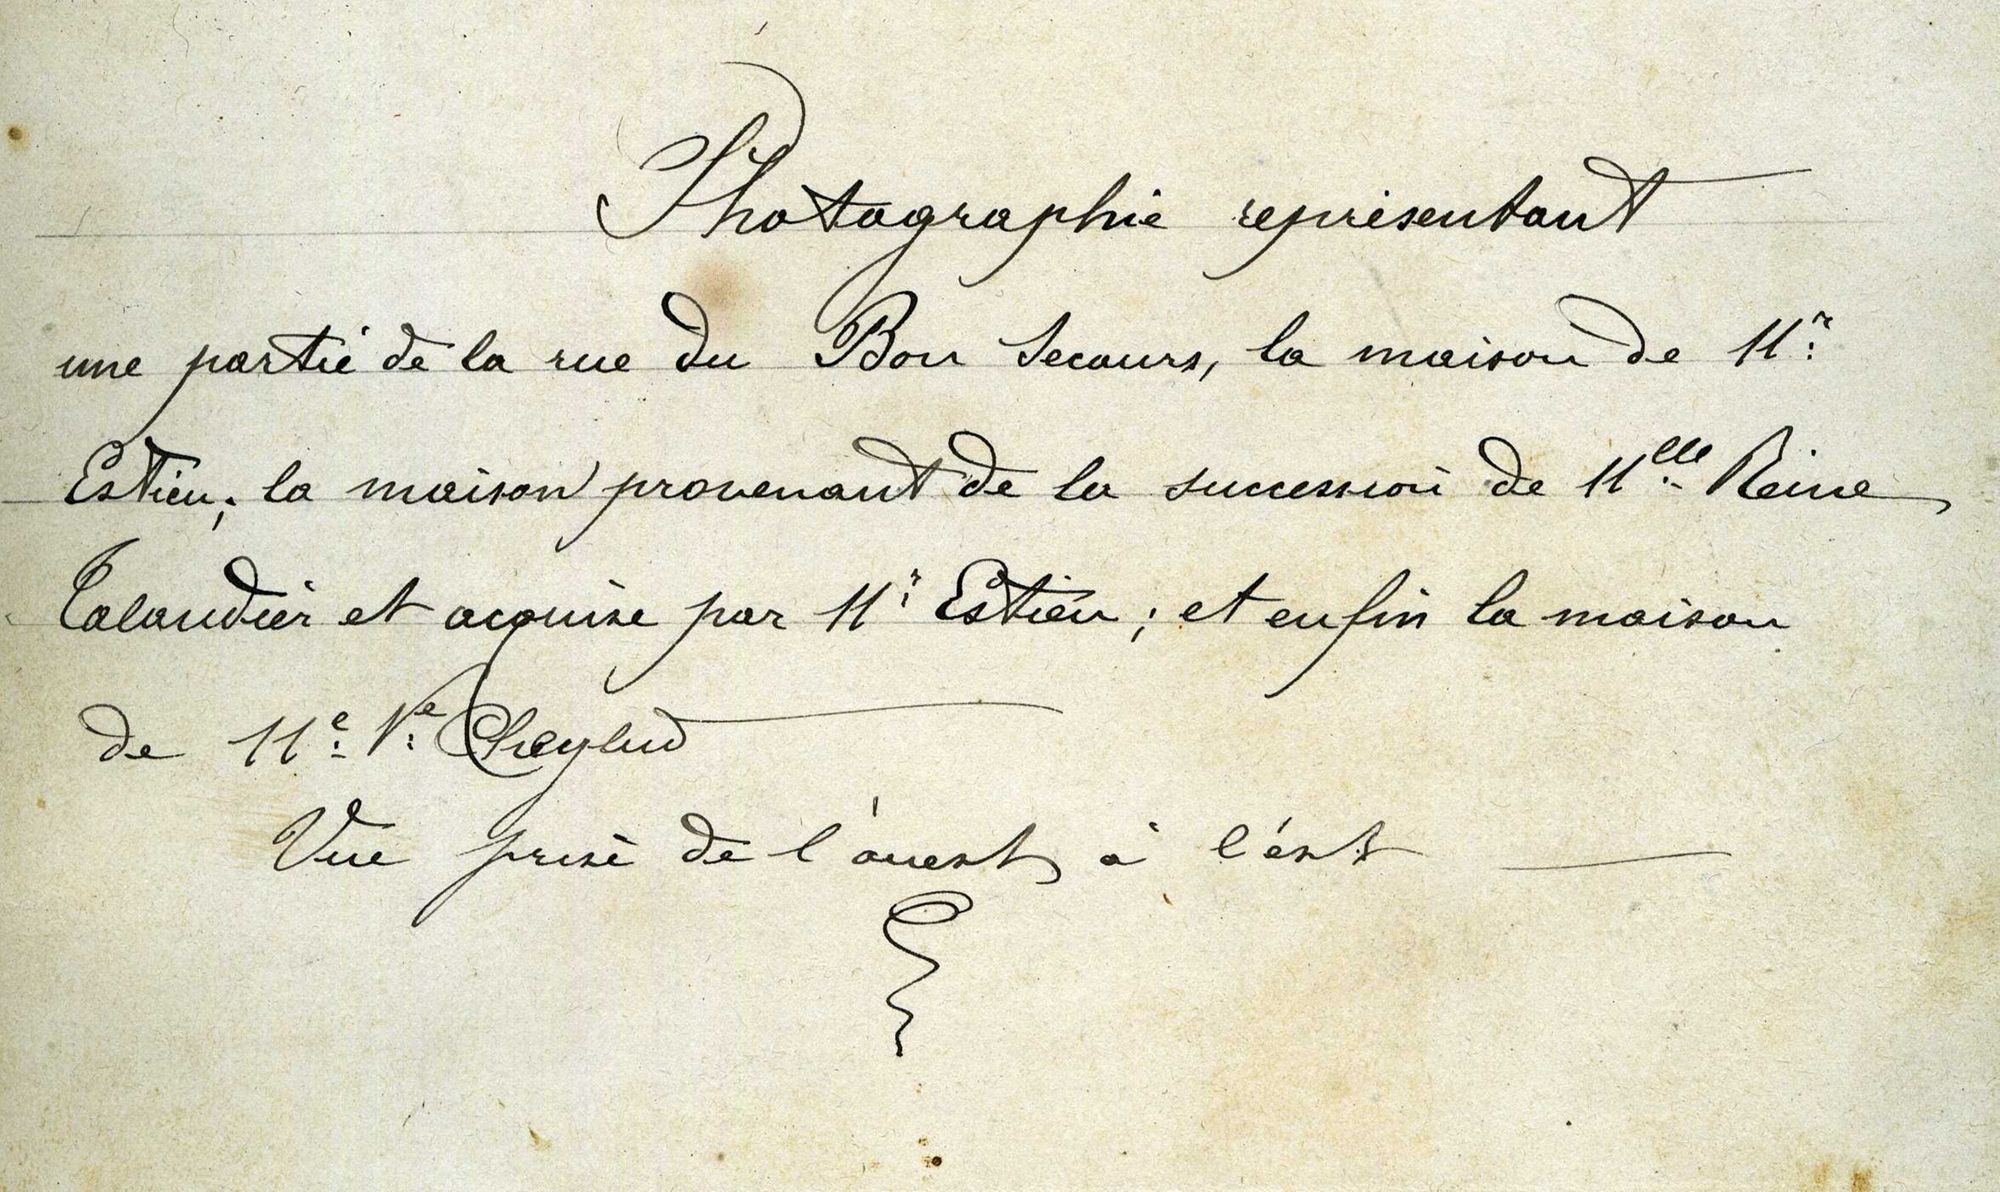 Photographie représentant
une partie de la rue du Bon Secours, la maison de Mr.
Estieu; la maison provenant de la succession de Melle. Reine
Talandier et acquise par Mr. Estieu; et enfin la maison
de Me. Ve.
Vue prise de l'ouest à l'est